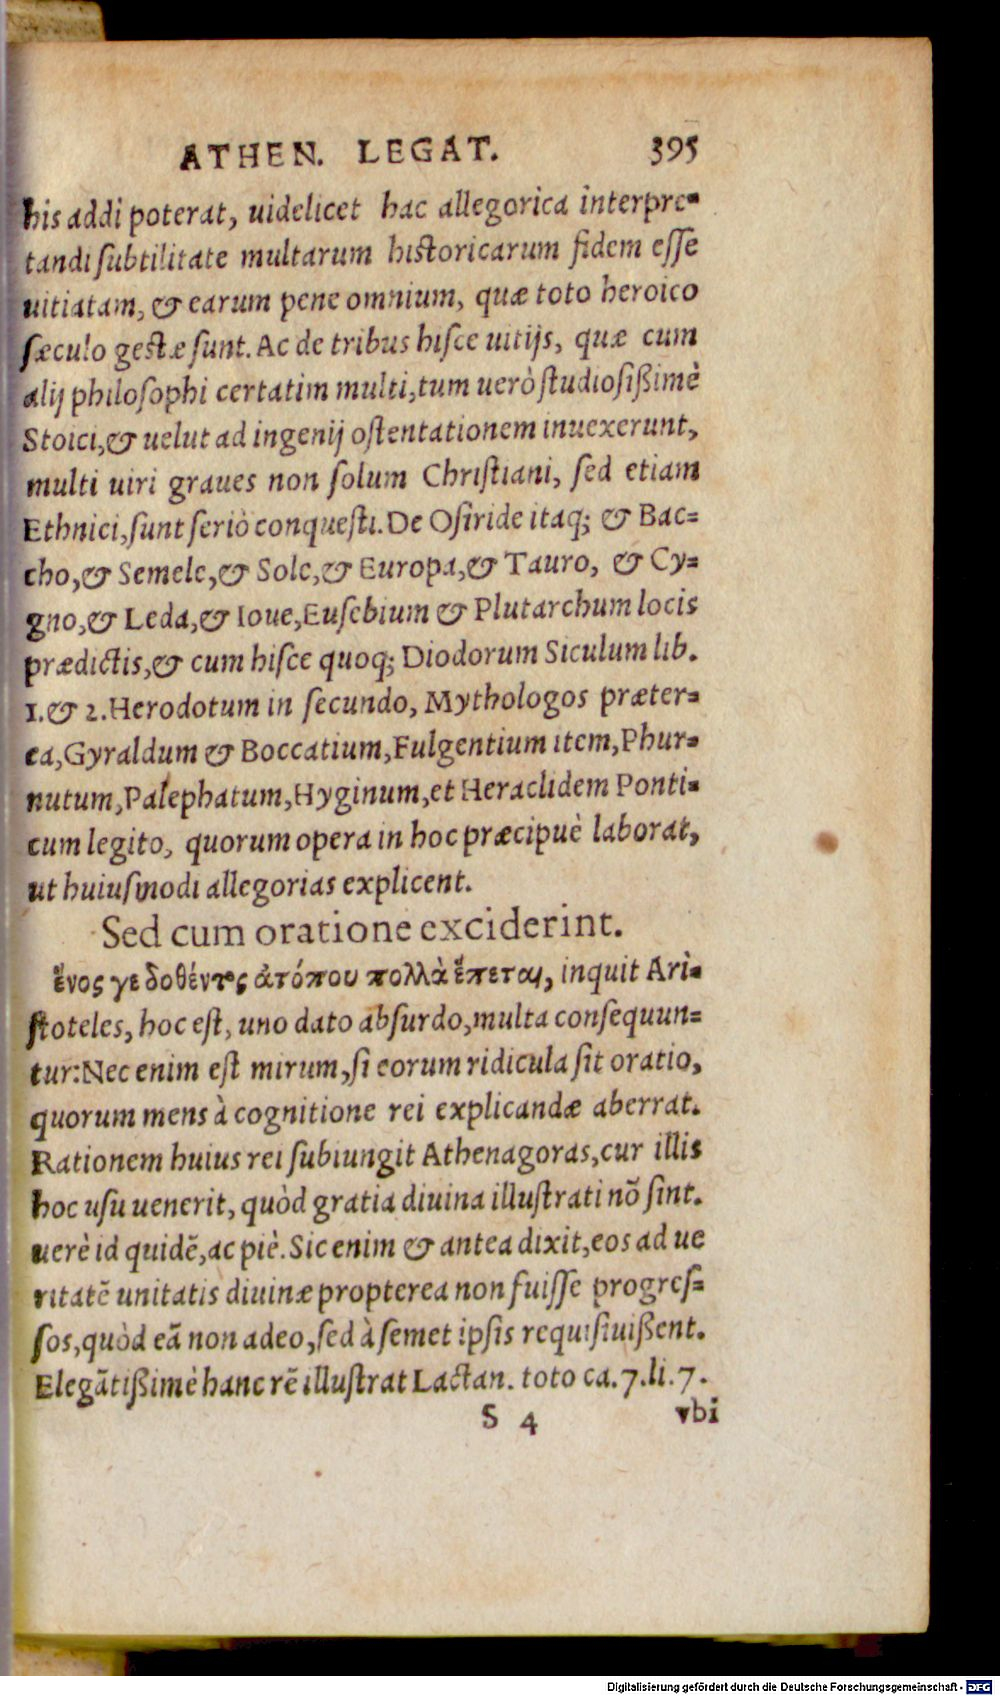 ATHEN. LEGAT. 395
his addi poterat, uidelicet hac allegorica interpre-
tandi subtilitate multarum historicarum fidem esse
uitiatam, & earum pene omnium, quæ toto heroico
sæculo gestæ sunt. Ac de tribus hisce uitijs, quæ cum
alij philosophi certatim multi, tum uerò studiosißimè
Stoici, & uelut ad ingenij ostentationem inuexerunt,
multi uiri graues non solum Christiani, sed etiam
Ethnici, sunt seriò conquesti. De Osiride itaq; & Bac-
cho, & Semele, & Sole, & Europa, & Tauro, & Cy-
gno, & Leda, & Ioue, Eusebium & Plutarchum locis
prædictis, & cum hisce quoq; Diodorum Siculum lib.
1. & 2. Herodotum in secundo, Mythologos præter-
ea, Gyraldum & Boccatium, Fulgentium item, Phur-
nutum, Palephatum, Hyginum, et Heraclidem Ponti-
cum legito, quorum opera in hoc præcipuè laborat,
ut huiusmodi allegorias explicent.
Sed cum oratione exciderint.
ἕνος γε δοθέντος ἀτόπου πολλὰ ἕπεται, inquit Ari-
stoteles, hoc est, uno dato absurdo, multa consequun-
tur: Nec enim est mirum, si eorum ridicula sit oratio,
quorum mens à cognitione rei explicandæ aberrat.
Rationem huius rei subiungit Athenagoras, cur illis
hoc usu uenerit, quòd gratia diuina illustrati nō sint.
uerè id quidē, ac piè. Sic enim & antea dixit, eos ad ue
ritatē unitatis diuinæ propterea non fuisse progres-
sos, quòd eā non adeo, sed à semet ipsis requisiuißent.
Elegātißimè hanc rē illustrat Lactan. toto ca. 7. li. 7.
S 4 vbi
Digitalisierung gefördert durch die Deutsche Forschungsgemeinschaft - DFG